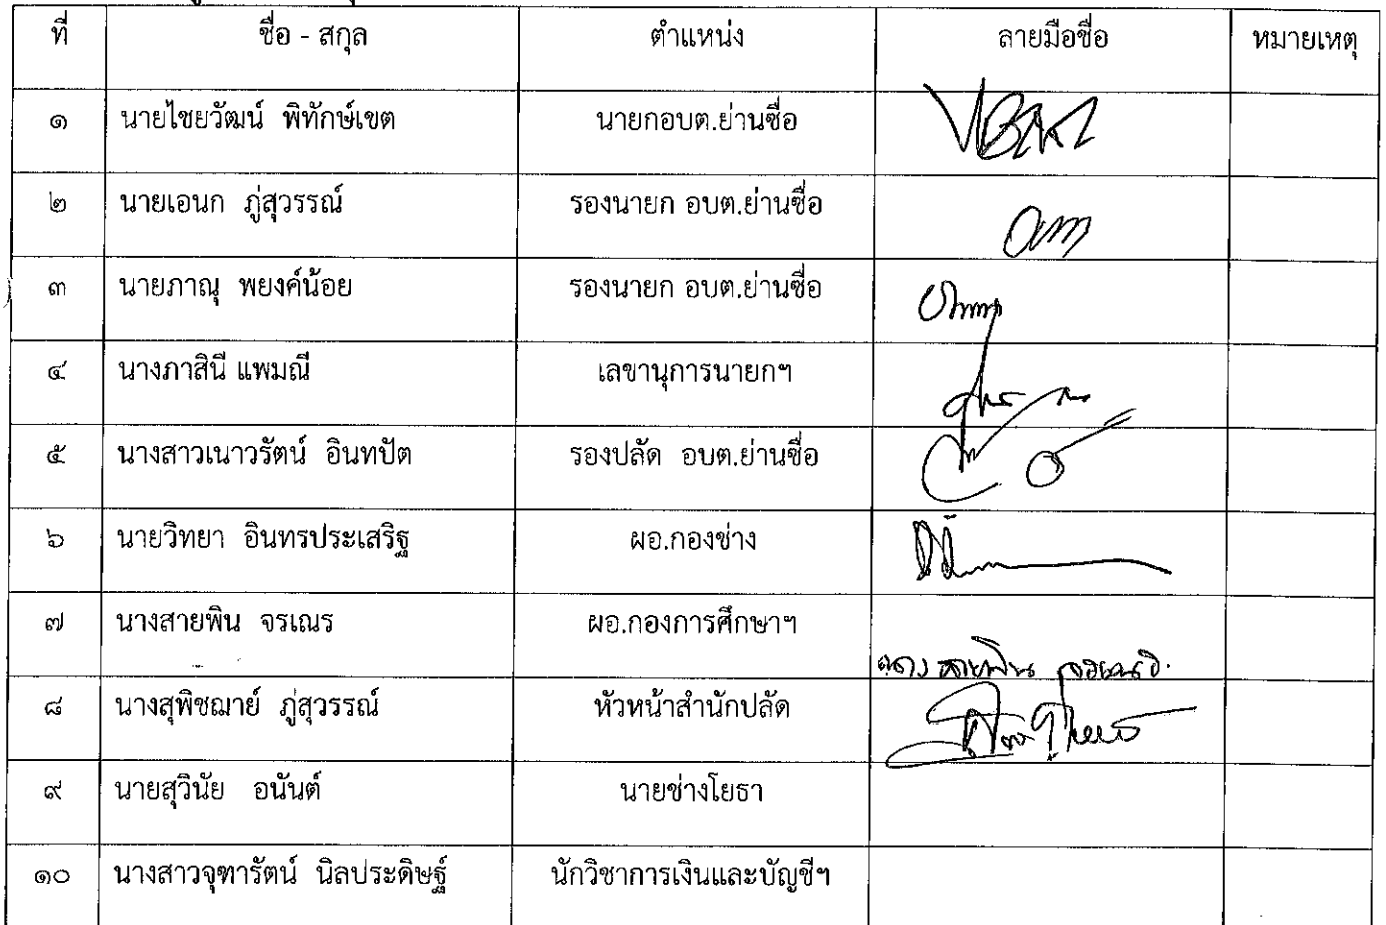 ที่ ชื่อ - สกุล ตำแหน่ง ลายมือชื่อ หมายเหตุ
๑ นายไชยวัฒน์ พิทักษ์เขต นายกอบต.ย่านซื่อ
๒ นายเอนก ภู่สุวรรณ์ รองนายก อบต.ย่านซื่อ
๓ นายภาณุ พยงค์น้อย รองนายก อบต.ย่านซื่อ
๔ นางภาสินี แพมณี เลขานุการนายกฯ
๕ นางสาวเนาวรัตน์ อินทปัต รองปลัด อบต.ย่านซื่อ
๖ นายวิทยา อินทรประเสริฐ ผอ.กองช่าง
๗ นางสายพิน จรเณร ผอ.กองการศึกษาฯ นางสายพิน จรเณร
๘ นางสุพิชฌาย์ ภู่สุวรรณ์ หัวหน้าสำนักปลัด
๙ นายสุวินัย อนันต์ นายช่างโยธา
๑๐ นางสาวจุฑารัตน์ นิลประดิษฐ์ นักวิชาการเงินและบัญชีฯ